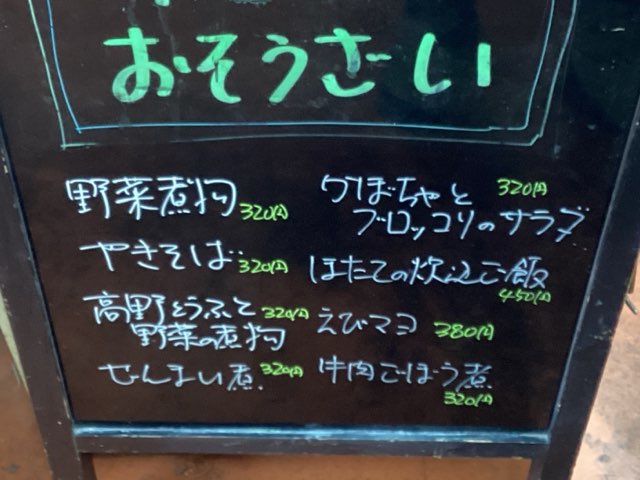 おそうざい
野菜煮物 320円
やきそば 320円
高野とうふと 320円
野菜の煮物
ぜんまい煮 320円
かぼちゃと 320円
ブロッコリのサラダ
ほたての炊込ご飯
450円
えびマヨ 380円
牛肉ごぼう煮
320円